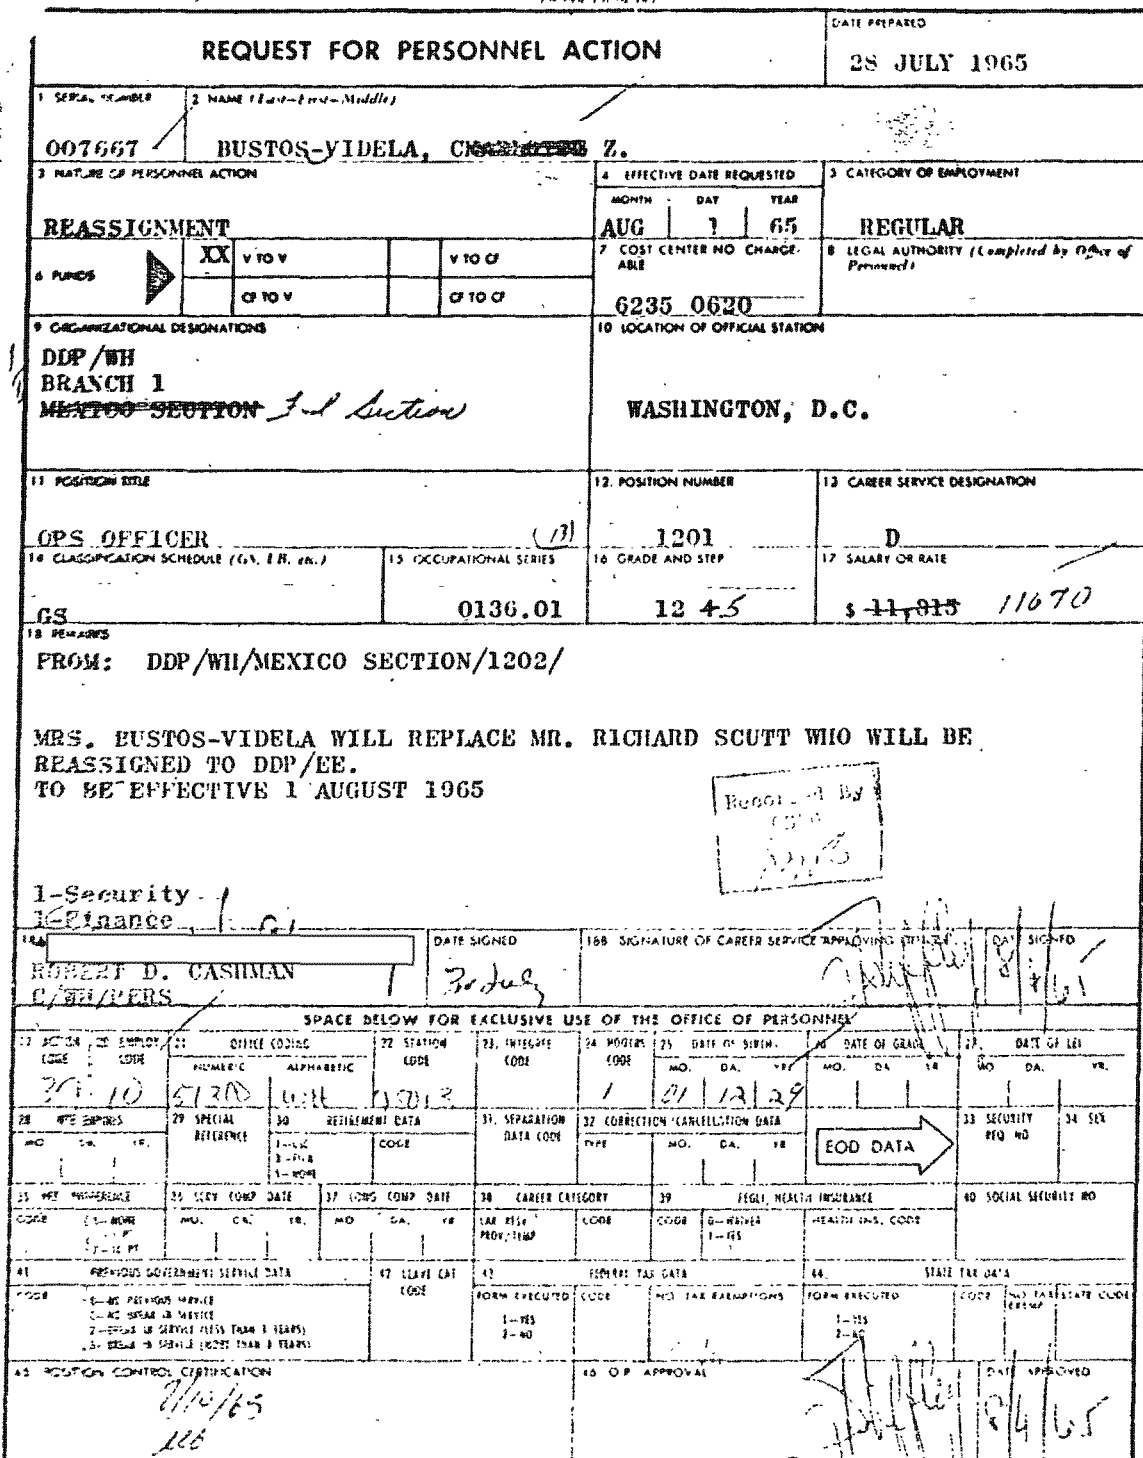 DATE PREPARED
REQUEST FOR PERSONNEL ACTION
28 JULY 1965
1 SERIAL NUMBER
2 NAME (Last-First-Middle)
007667
BUSTOS-VIDELA, C Z.
3 NATURE OF PERSONNEL ACTION
4 EFFECTIVE DATE REQUESTED
5 CATEGORY OF EMPLOYMENT
MONTH DAY YEAR
REASSIGNMENT
AUG 1 65
REGULAR
6 FUNDS
XX V TO V
V TO CF
CF TO V
CF TO CF
7 COST CENTER NO CHARGE-
ABLE
8 LEGAL AUTHORITY (Completed by Office of
Personnel)
6235 0620
9 ORGANIZATIONAL DESIGNATIONS
10 LOCATION OF OFFICIAL STATION
DDP/WH
BRANCH 1
MEXICO SECTION Section
WASHINGTON, D.C.
11 POSITION TITLE
12. POSITION NUMBER
13 CAREER SERVICE DESIGNATION
OPS OFFICER (13)
1201
D
14 CLASSIFICATION SCHEDULE (GS, LB, etc.)
15 OCCUPATIONAL SERIES
16 GRADE AND STEP
17 SALARY OR RATE
GS
0136.01
12 4 5
$ 11,315 11670
18 REMARKS
FROM: DDP/WH/MEXICO SECTION/1202/
MRS. BUSTOS-VIDELA WILL REPLACE MR. RICHARD SCUTT WHO WILL BE
REASSIGNED TO DDP/EE.
TO BE EFFECTIVE 1 AUGUST 1965
Recorded By
1-Security
1-Finance
DATE SIGNED
18B SIGNATURE OF CAREER SERVICE APPROVING OFFICER
DATE SIGNED
ROBERT D. CASHMAN
C/WH/PERS
30 July
SPACE BELOW FOR EXCLUSIVE USE OF THE OFFICE OF PERSONNEL
19 ACTION CODE
20 EMPLOY CODE
21 OFFICE CODING
NUMERIC ALPHABETIC
22 STATION CODE
23. INTEGREE CODE
24 HDQTRS CODE
25 DATE OF BIRTH
MO. DA. YR.
26 DATE OF GRADE
MO. DA. YR.
27. DATE OF LEI
MO DA. YR.
10
WH
1
01 12 29
28 NTE EXPIRES
MO DA. YR.
29 SPECIAL REFERENCE
30 RETIREMENT DATA
CODE
31. SEPARATION DATA CODE
32 CORRECTION/CANCELLATION DATA
TYPE MO. DA. YR
EOD DATA
33 SECURITY REQ NO
34 SEX
35 VET PREFERENCE
CODE
36 SERV COMP DATE
MO. DA. YR.
37 LONG COMP DATE
MO DA. YR
38 CAREER CATEGORY
CAR RESV
PROV/TEMP
CODE
39 FEGLI, HEALTH INSURANCE
CODE
0-WAIVER
1-YES
HEALTH INS. CODE
40 SOCIAL SECURITY NO
41 PREVIOUS GOVERNMENT SERVICE DATA
CODE
0-NO PREVIOUS SERVICE
1-NO BREAK IN SERVICE
2-BREAK IN SERVICE (LESS THAN 3 YEARS)
3-BREAK IN SERVICE (MORE THAN 3 YEARS)
42 LEAVE CAT CODE
43 FEDERAL TAX DATA
FORM EXECUTED
1-YES
2-NO
CODE
NO. TAX EXEMPTIONS
44. STATE TAX DATA
FORM EXECUTED
1-YES
2-NO
CODE
NO. TAX EXEMP
STATE CODE
45 POSITION CONTROL CERTIFICATION
46 O.P. APPROVAL
DATE APPROVED
8/4/65